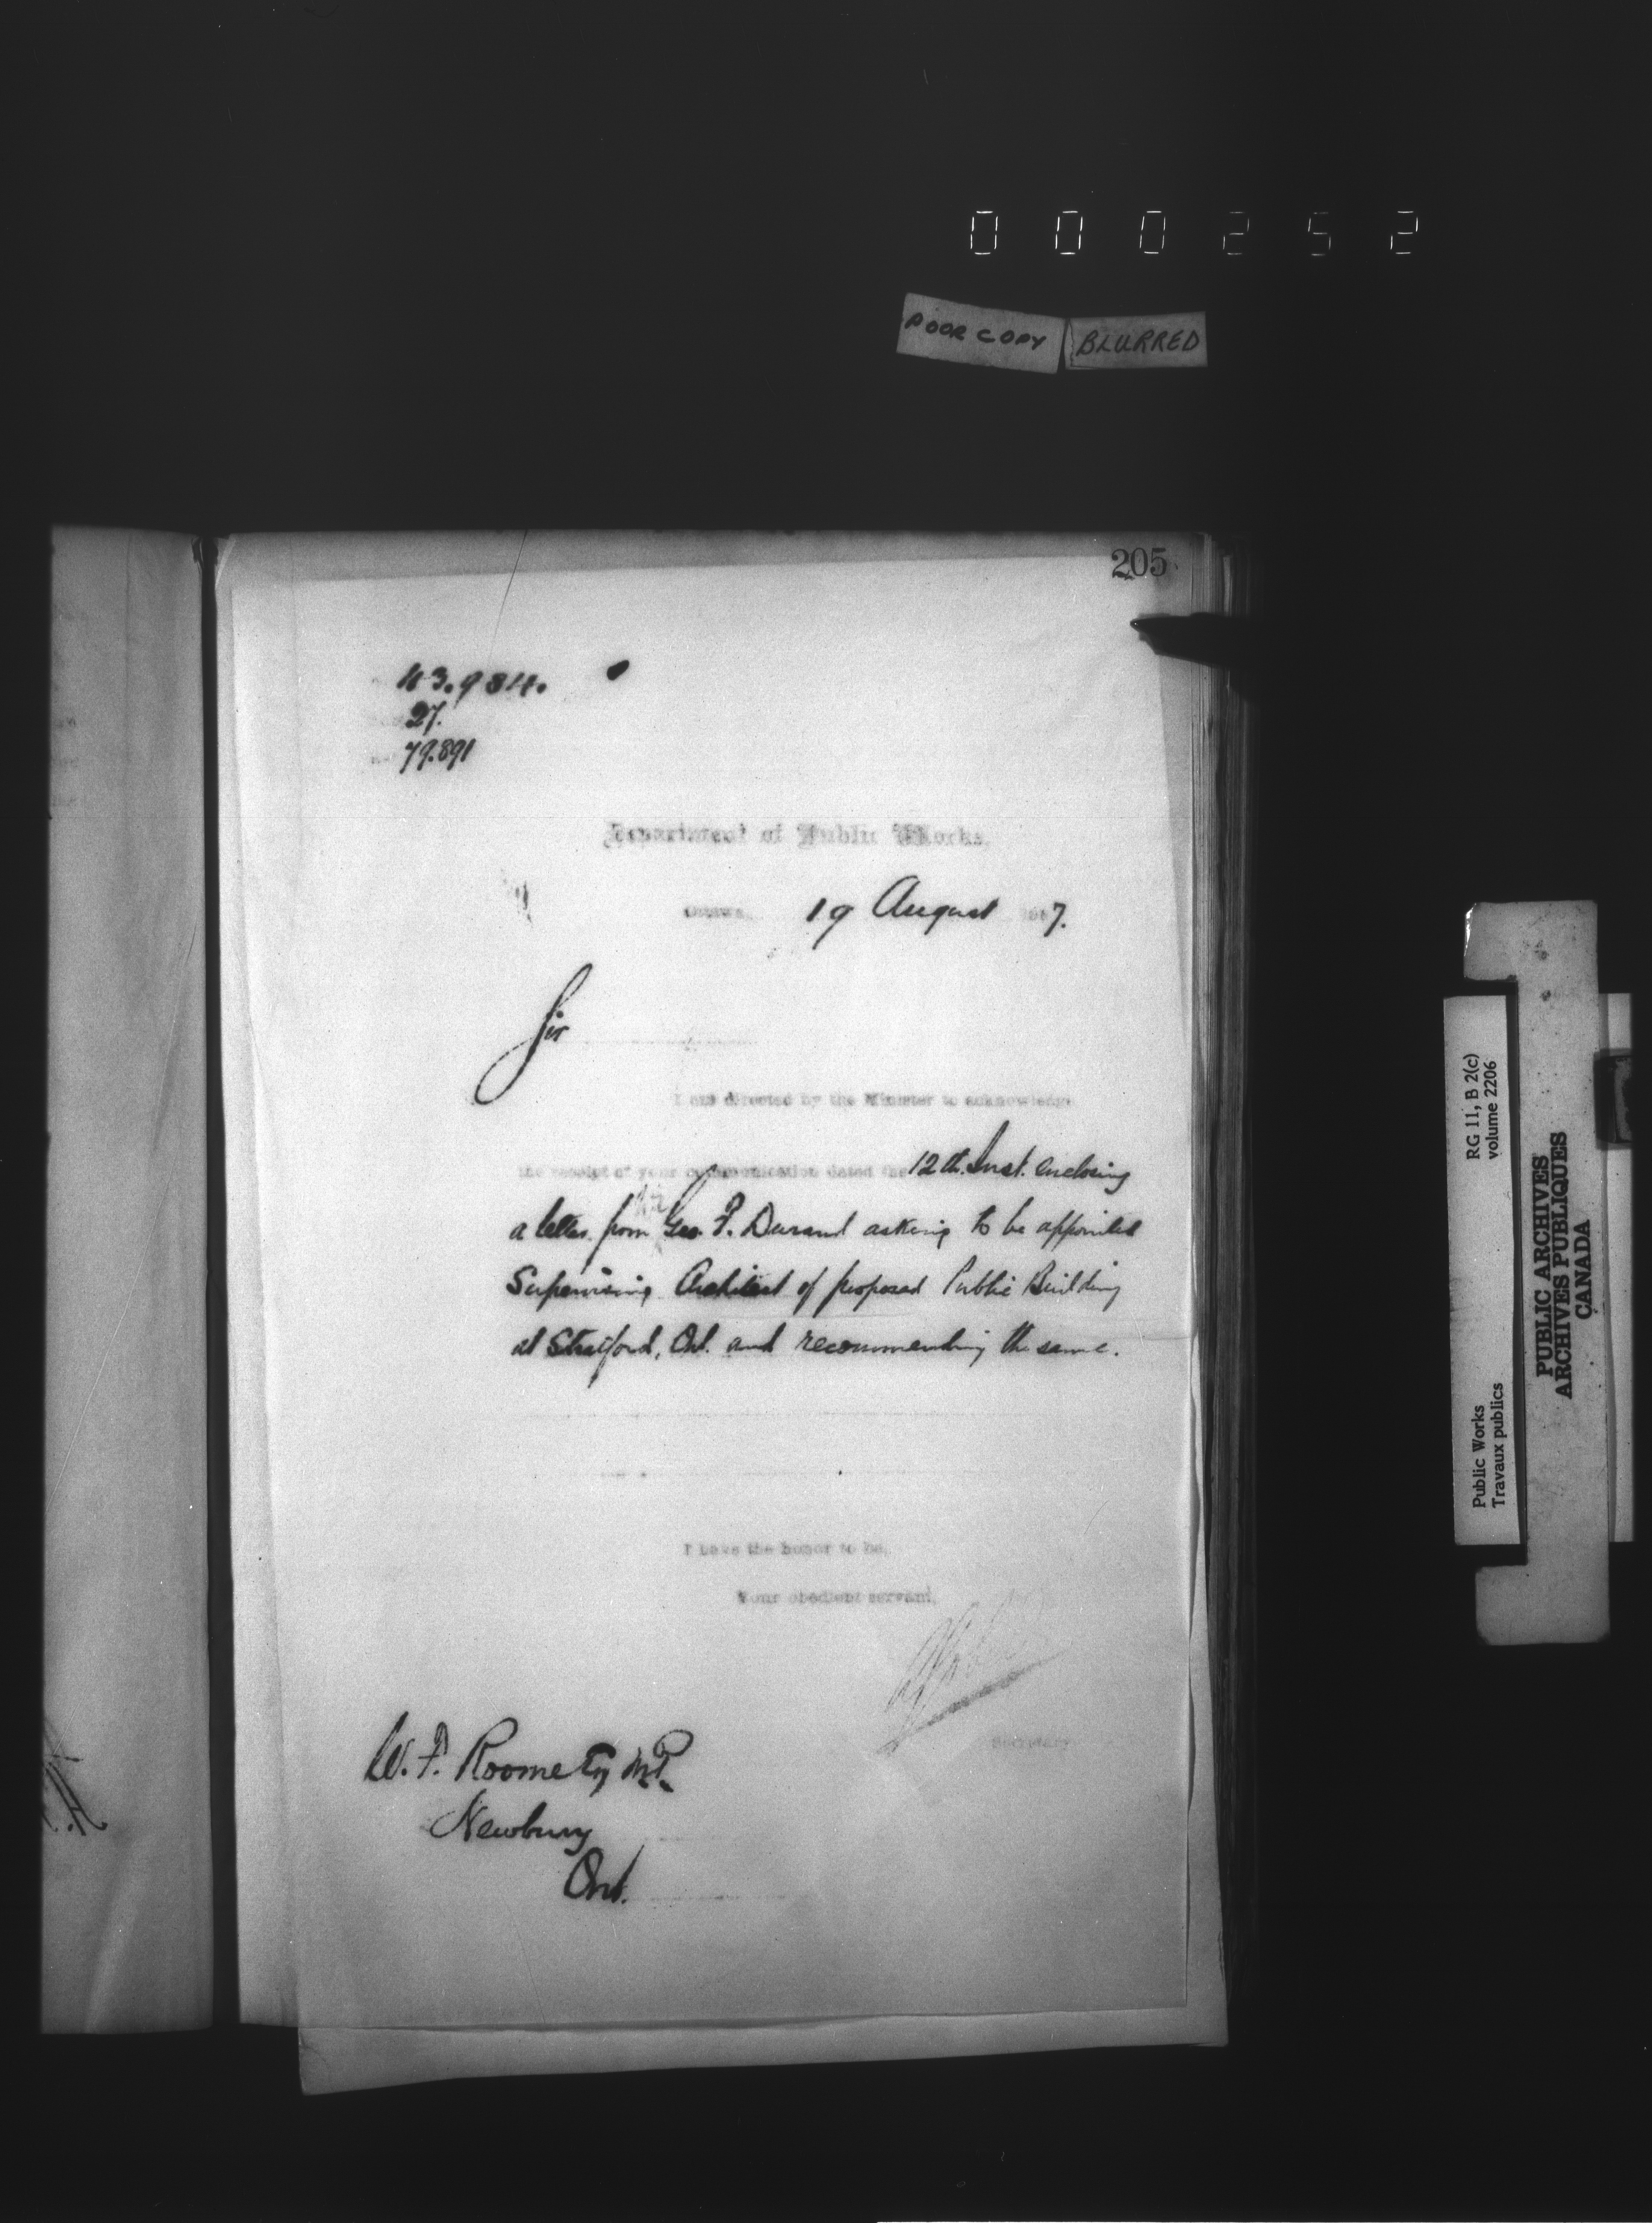 000252
POOR COPY BLURRED
205
43.934.
27.
79.891
Department of Public Works.
Ottawa, 19 August 1887.
Sir
I am directed by the Minister to acknowledge
the receipt of your communication dated the 12th. Inst. enclosing
a letter from Geo. F. Durand asking to be appointed
Supervising Architect of proposed Public Building
at Stratford, Ont. and recommending the same.
I have the honor to be,
Your obedient servant,
Secretary
W. F. Roome Esq M.P.
Newbury
Ont.
RG 11, B 2(c)
volume 2206
Public Works
Travaux publics
PUBLIC ARCHIVES
ARCHIVES PUBLIQUES
CANADA